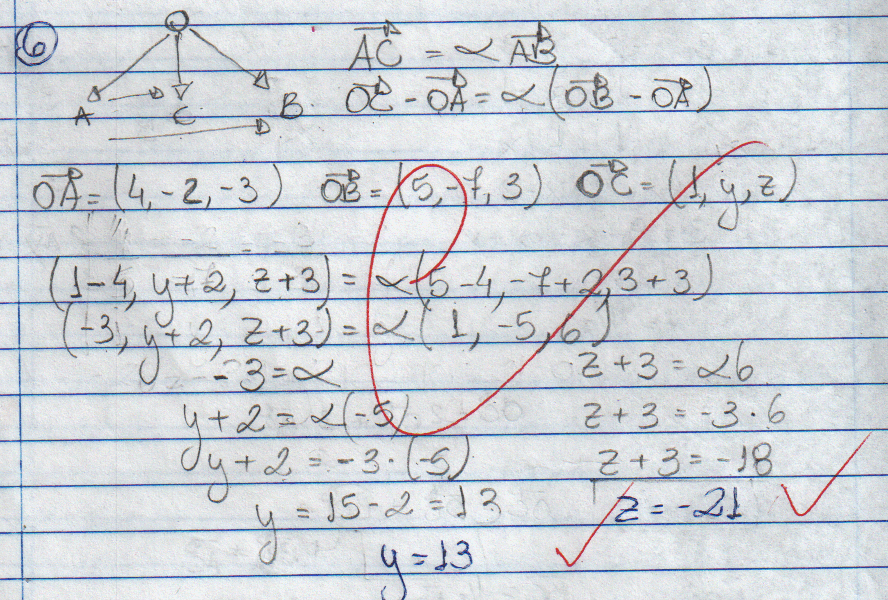 6
O
A C B
AC⃗ = α AB⃗
OC⃗ - OA⃗ = α(OB⃗ - OA⃗)
OA⃗ = (4, -2, -3) OB⃗ = (5, -7, 3) OC⃗ = (1, y, z)
(1-4, y+2, z+3) = α(5-4, -7+2, 3+3)
(-3, y+2, z+3) = α(1, -5, 6)
-3 = α
y+2 = α(-5)
y+2 = -3·(-5)
y = 15-2 = 13
y = 13
z+3 = α6
z+3 = -3·6
z+3 = -18
z = -21